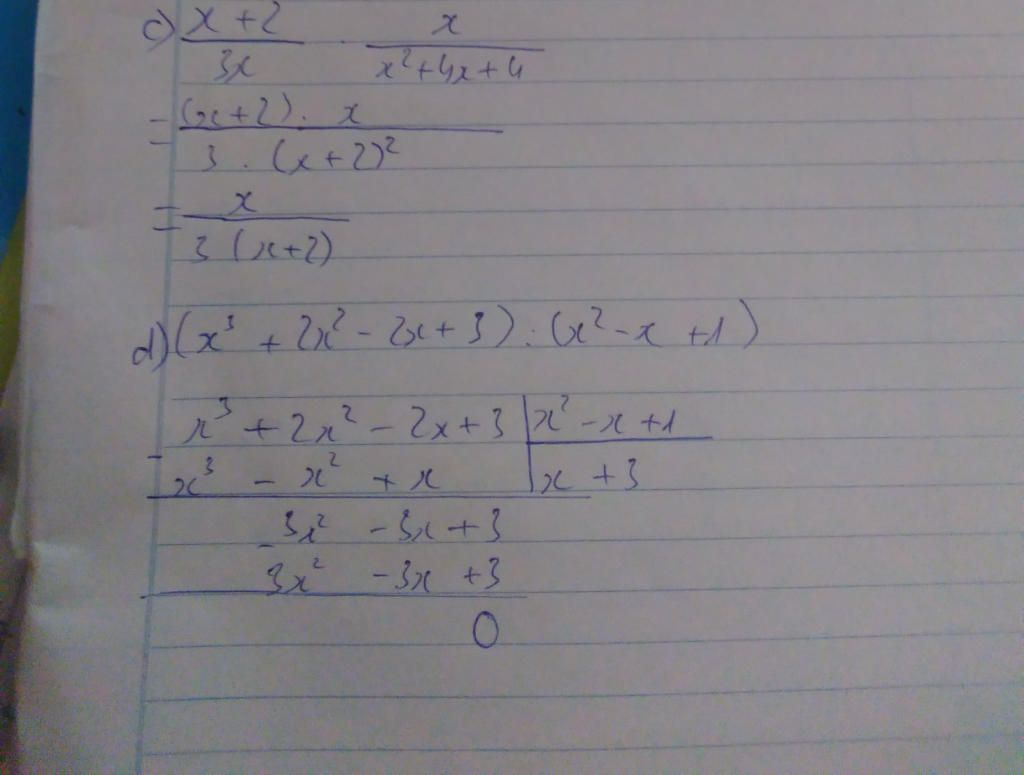 c) x + 2 / 3x . x / x² + 4x + 4
= (x + 2) . x / 3 . (x + 2)²
= x / 3 (x + 2)
d) (x³ + 2x² - 2x + 3) : (x² - x + 1)
x³ + 2x² - 2x + 3 | x² - x + 1
- x³ - x² + x | x + 3
3x² - 3x + 3
- 3x² - 3x + 3
0